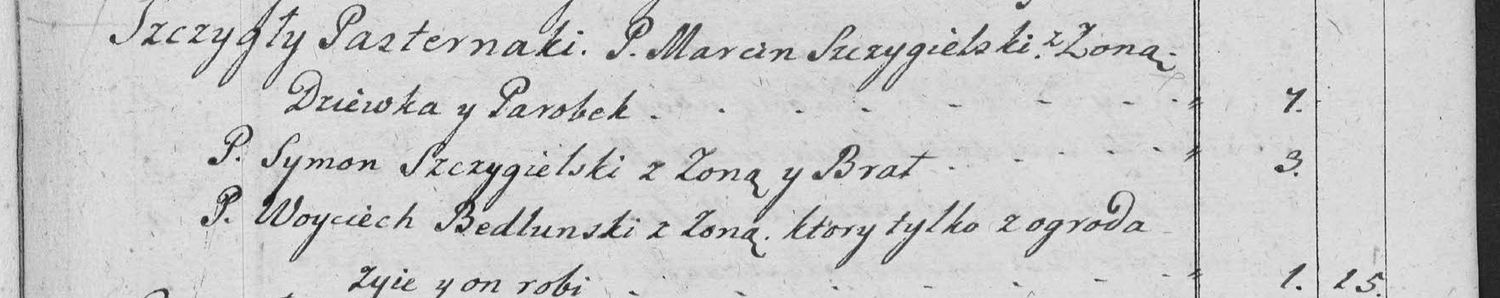 Szczygły Pasternaki. P. Marcin Szczygielski. z Zoną.
Dziewka y Parobek . - . - . - . - . " 4.
P. Symon Szczygielski z Zoną y Brat - . - . - . " 3.
P. Woyciech Bedlunski z Zoną. ktory tylko z ogroda
żyie y on robi . - . - . - . - . " 1. 15.